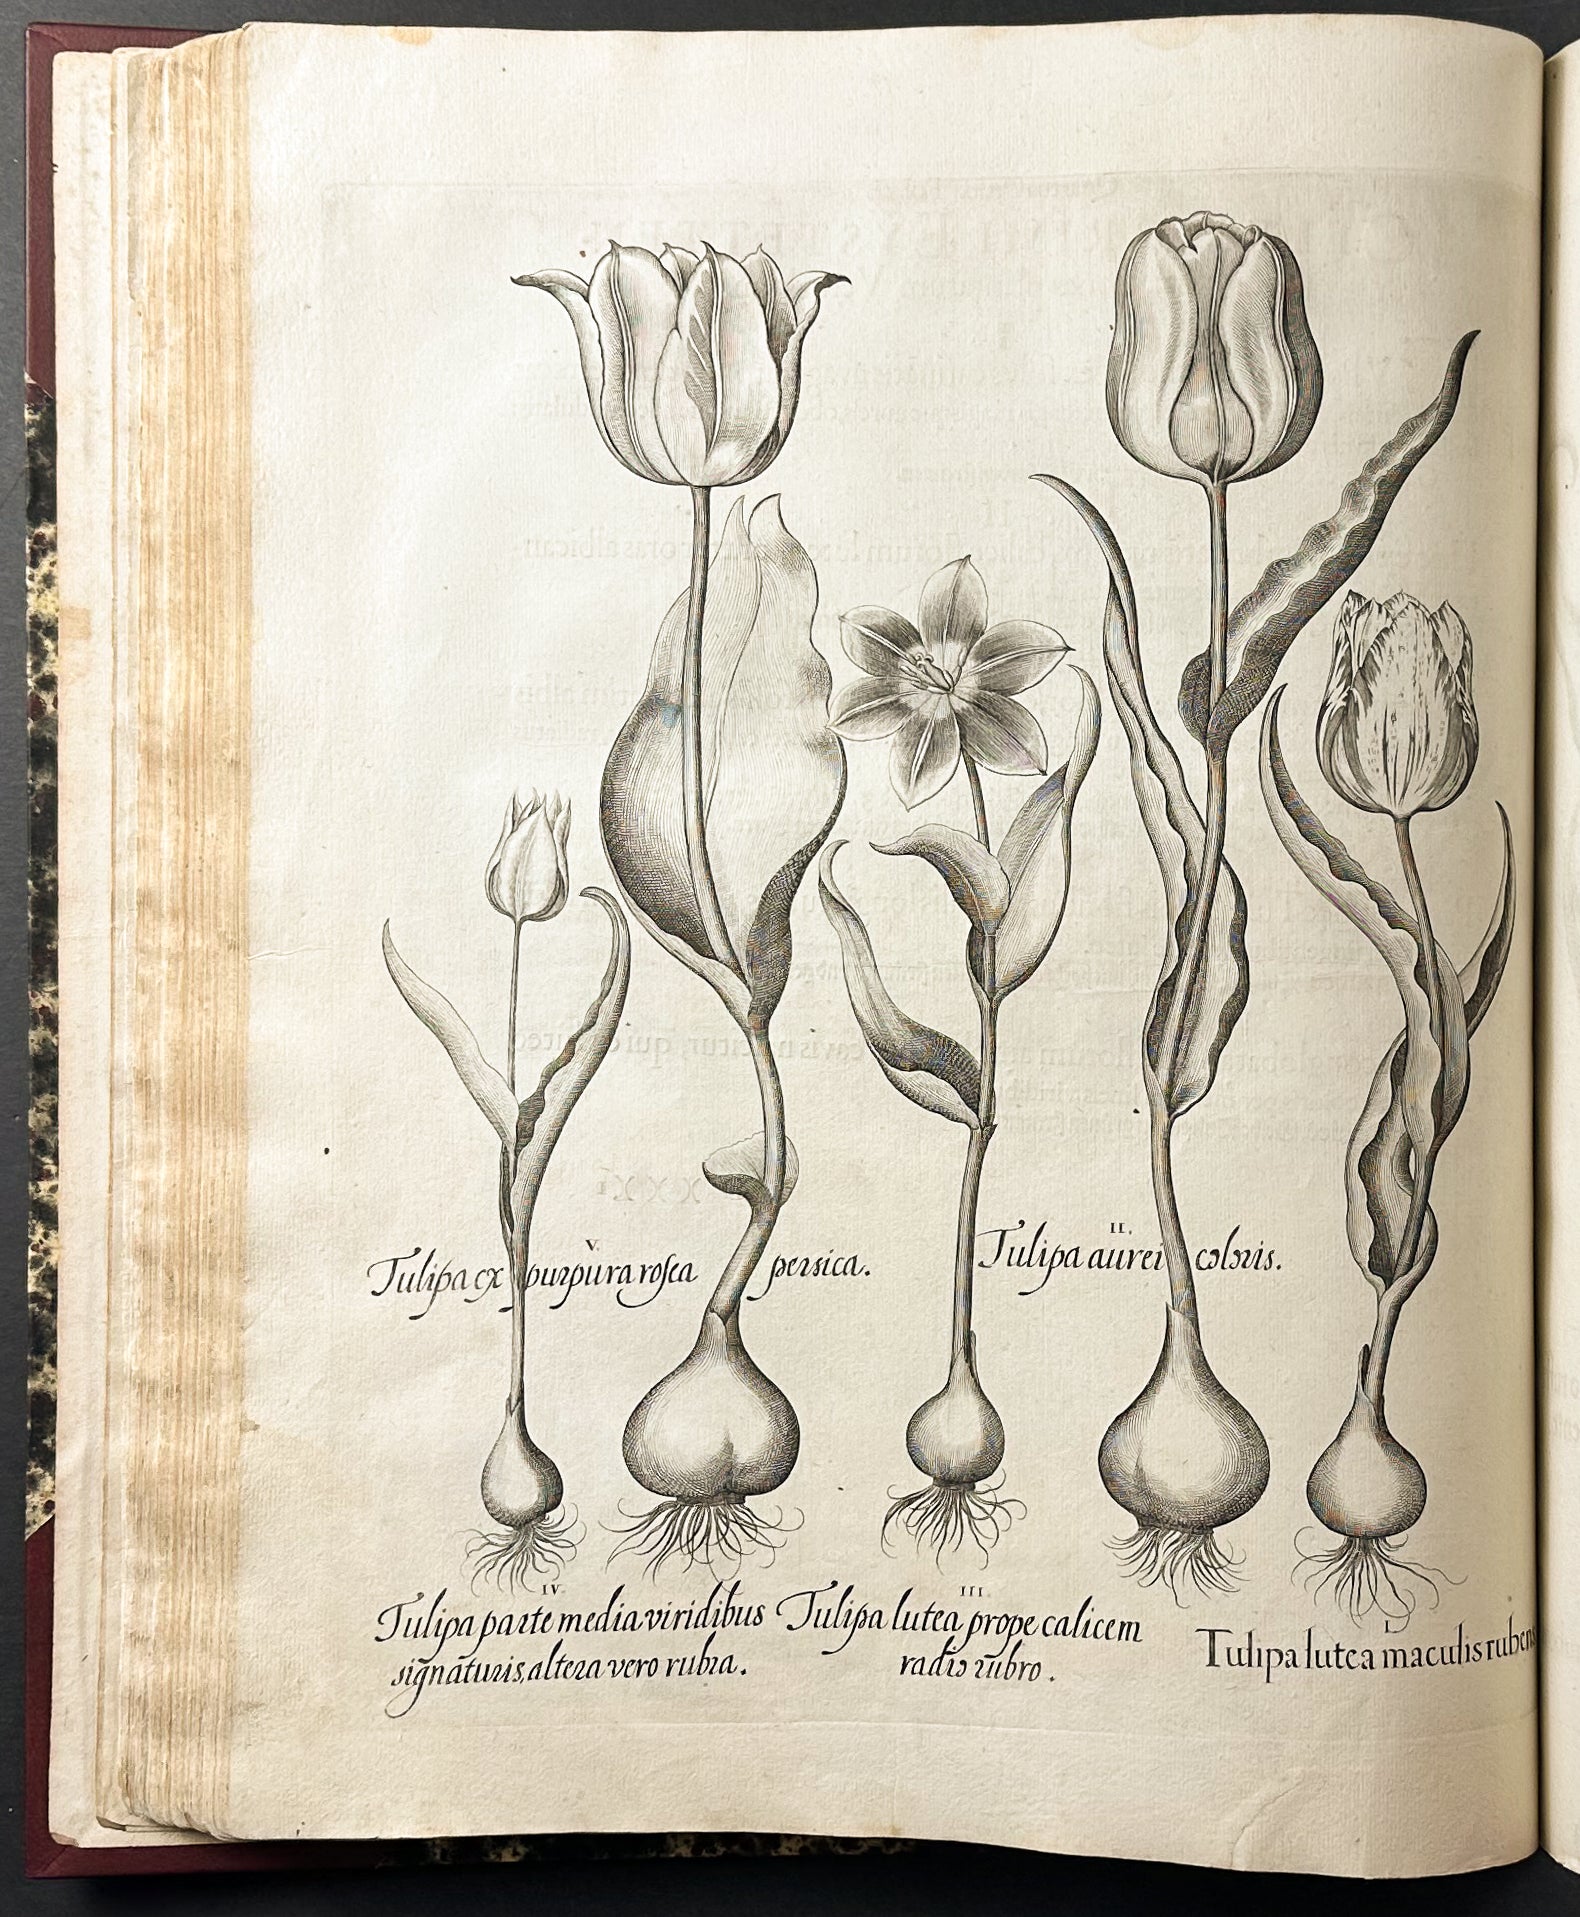 V.
Tulipa ex purpura rosea persica.
II.
Tulipa aurei coloris.
IV.
Tulipa parte media viridibus
signaturis, altera vero rubra.
III.
Tulipa lutea prope calicem
radio rubro.
I.
Tulipa lutea maculis rubens